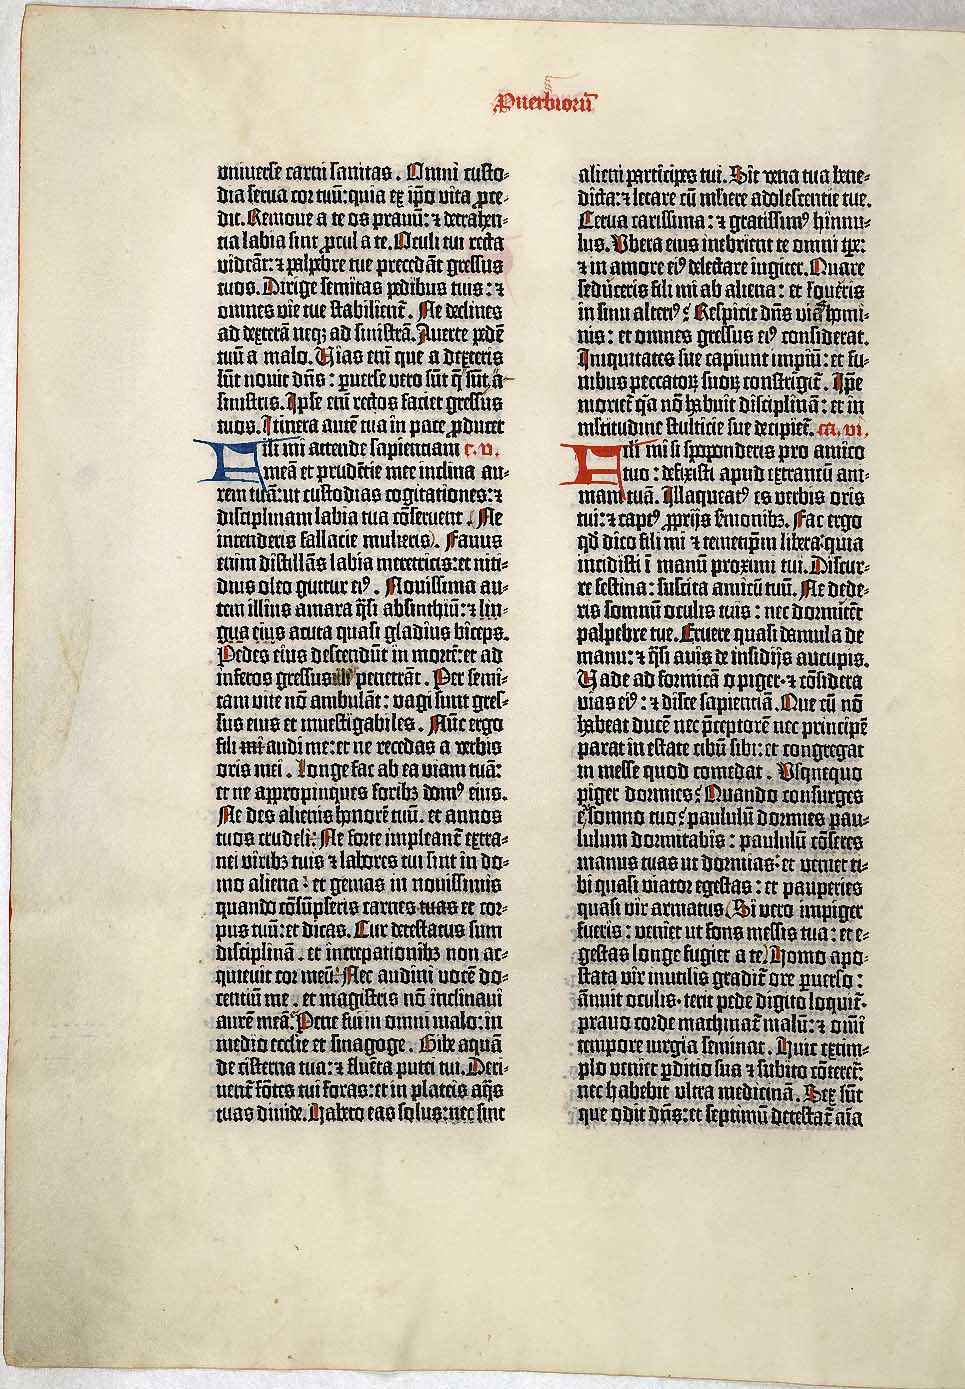 Puerbiorū
vniuerse carni sanitas. Omni custo-
dia serua cor tuū: quia ex ip̄o vita p̄ce-
dit. Remoue a te os prauū: ⁊ detrahen-
tia labia sint p̄cul a te. Oculi tui recta
videāt: ⁊ palpebre tue precedāt gressus
tuos. Dirige semitas pedibus tuis: ⁊
omnes vie tue stabilient̄. Ne declines
ad dexterā neqꝫ ad sinistrā. Auerte pedē
tuū a malo. Vias eni que a dexteris
sūt nouit dn̄s: ꝑuerse vero sūt q̄ sūt a
sinistris. Ipse eni rectos faciet gressus
tuos. Itinera autē tua in pace p̄ducet
Fili mi attende sapientiam c. v.
meā et prudētie mee inclina au-
rem tuā: ut custodias cogitationes: ⁊
disciplinam labia tua cōseruent. Ne
intenderis fallacie mulieris. Fauus
enim distillās labia meretricis: et niti-
dius oleo guttur eiꝰ. Nouissima au-
tem illius amara q̄si absinthiū: ⁊ lin-
gua eius acuta quasi gladius biceps.
Pedes eius descendūt in mortē: et ad
inferos gressus illiꝰ penetrāt. Per semi-
tam vite nō ambulāt: vagi sunt gres-
sus eius et inuestigabiles. Nūc ergo
fili mi audi me: et ne recedas a verbis
oris mei. Longe fac ab ea viam tuā:
et ne appropinques foribꝫ domꝰ eius.
Ne des alienis honorē tuū. et annos
tuos crudeli. Ne forte impleant̄ extra-
nei viribꝫ tuis ⁊ labores tui sint in do-
mo aliena: et gemas in nouissimis
quando cōsūpseris carnes tuas et cor-
pus tuū: et dicas. Cur detestatus sum
disciplinā. et increpationibꝫ non ac-
quieuit cor meū. Nec audiui vocē do-
centiū me. et magistris nō inclinaui
aurē meā. Pene fui in omni malo: in
medio ecclie et sinagoge. Bibe aquā
de cisterna tua: ⁊ fluēta putei tui. Deri-
uent̄ fōtes tui foras: et in plateis aq̄s
tuas diuide. Habeto eas solus: nec sint
alieni participes tui. Sit vena tua bene-
dicta: ⁊ letare cū mliere adolescentie tue.
Cerua carissima: ⁊ gratissimꝰ hinnu-
lus. Vbera eius inebrient te omni tp̄e:
⁊ in amore eiꝰ delectare iugiter. Quare
seduceris fili mi ab aliena: et foueris
in sinu alteriꝰ: Respicit dn̄s vias homi-
nis: et omnes gressus eiꝰ considerat.
Iniquitates sue capiunt impiū: et fu-
nibus peccatoꝝ suoꝝ constringit̄. Ip̄e
moriet̄ q̄a nō habuit disciplinā: et in
mltitudine stulticie sue decipiet̄. ca. vi.
Fili mi si spoponderis pro amico
tuo: defixisti apud extraneū ani-
mam tuā. Illaqueatꝰ es verbis oris
tui: ⁊ captꝰ p̄prijs sermonibꝫ. Fac ergo
qd̄ dico fili mi ⁊ temetip̄m libera: quia
incidisti ī manū proximi tui. Discur-
re festina: suscita amicū tuū. Ne dede-
ris somnū oculis tuis: nec dormitēt
palpebre tue. Eruere quasi damula de
manu: ⁊ q̄si auis de insidijs aucupis.
Vade ad formicā o piger. ⁊ cōsidera
vias eiꝰ: ⁊ disce sapientiā. Que cū nō
habeat ducē nec p̄ceptorē nec principē
parat in estate cibū sibi: et congregat
in messe quod comedat. Vsquequo
piger dormies: Quando consurges
e somno tuo: paululū dormies pau-
lulum dormitabis: paululū cōseres
manus tuas ut dormias: et veniet ti-
bi quasi viator egestas: et pauperies
quasi vir armatus. Si vero impiger
fueris: veniet ut fons messis tua: et e-
gestas longe fugiet a te. Homo apo-
stata vir inutilis gradit̄ ore ꝑuerso:
ānuit oculis. terit pede digito loquit̄.
prauo corde machinat̄ malū: ⁊ om̄i
tempore iurgia seminat. Huic extim-
plo veniet ꝑditio sua ⁊ subito cōteret̄:
nec habebit ultra medicinā. Sex sūt
que odit dn̄s: et septimū detestat̄ aīa